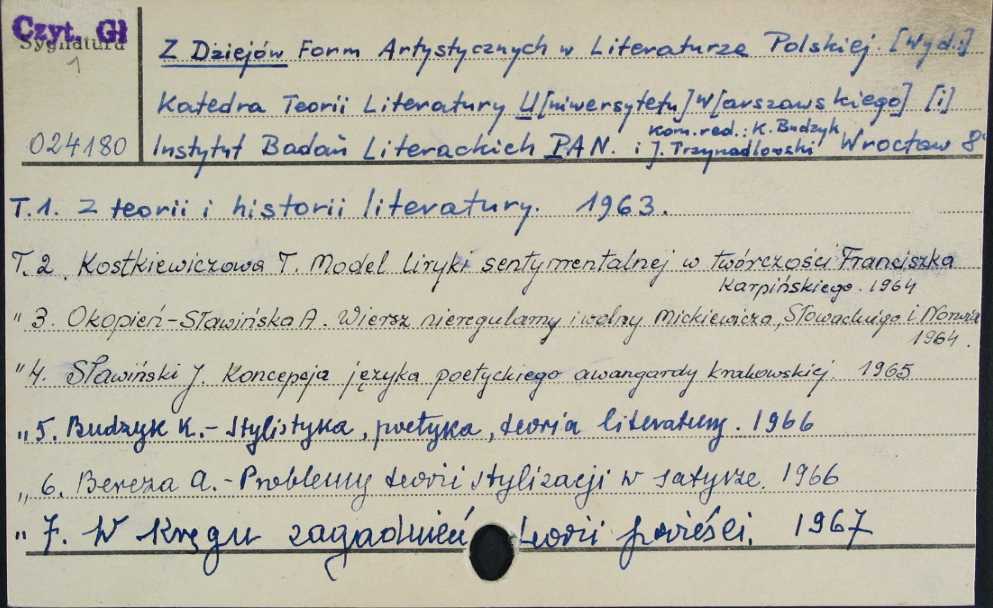 Czyt. Gł
Sygnatura
1
Z Dziejów Form Artystycznych w Literaturze Polskiej. [Wyd.:]
Katedra Teorii Literatury U[niwersytetu] W[arszawskiego] [i]
024180
Instytut Badań Literackich PAN. Kom. red.: K. Budzyk i J. Trzynadlowski Wrocław 8°
T. 1. Z teorii i historii literatury. 1963.
T. 2. Kostkiewiczowa T. Model liryki sentymentalnej w twórczości Franciszka
Karpińskiego. 1964
" 3. Okopień-Sławińska A. Wiersz nieregularny i wolny Mickiewicza, Słowackiego i Norwida
1964.
" 4. Sławiński J. Koncepcja języka poetyckiego awangardy krakowskiej. 1965
" 5. Budzyk K. - Stylistyka, poetyka, teoria literatury. 1966
" 6. Bereza A. - Problemy teorii stylizacji w satyrze. 1966
" 7. W kręgu zagadnień teorii powieści. 1967